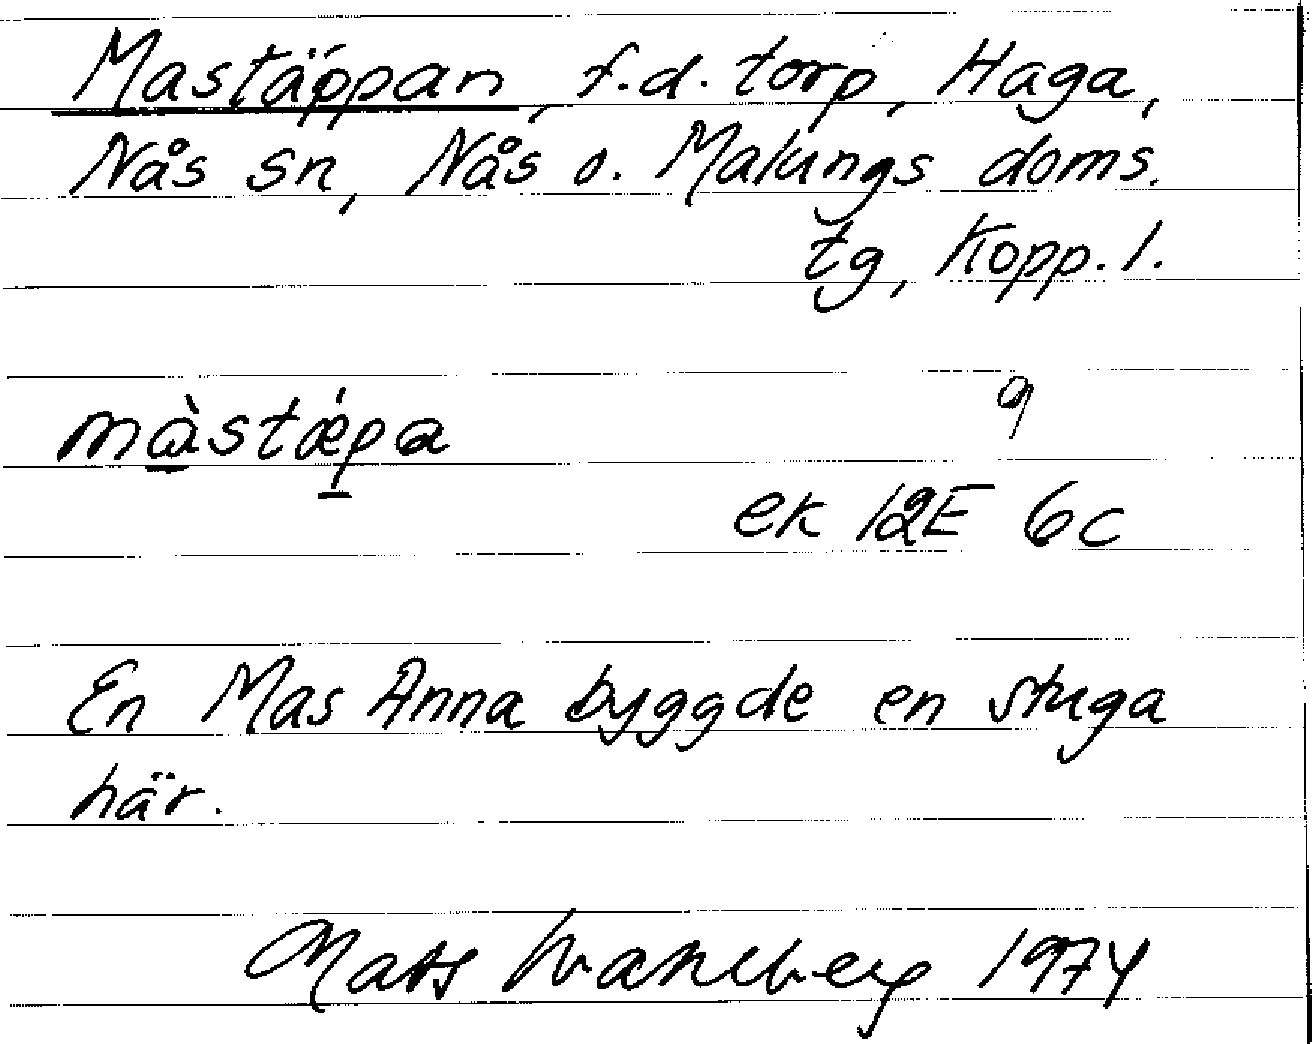 Mastäppan, f.d. torp, Haga,
Nås sn, Nås o. Malungs doms.
tg, Kopp. l.
màstǽpa
9
ek 12E 6c
En Mas Anna byggde en stuga
här.
Mats Wahlberg 1974